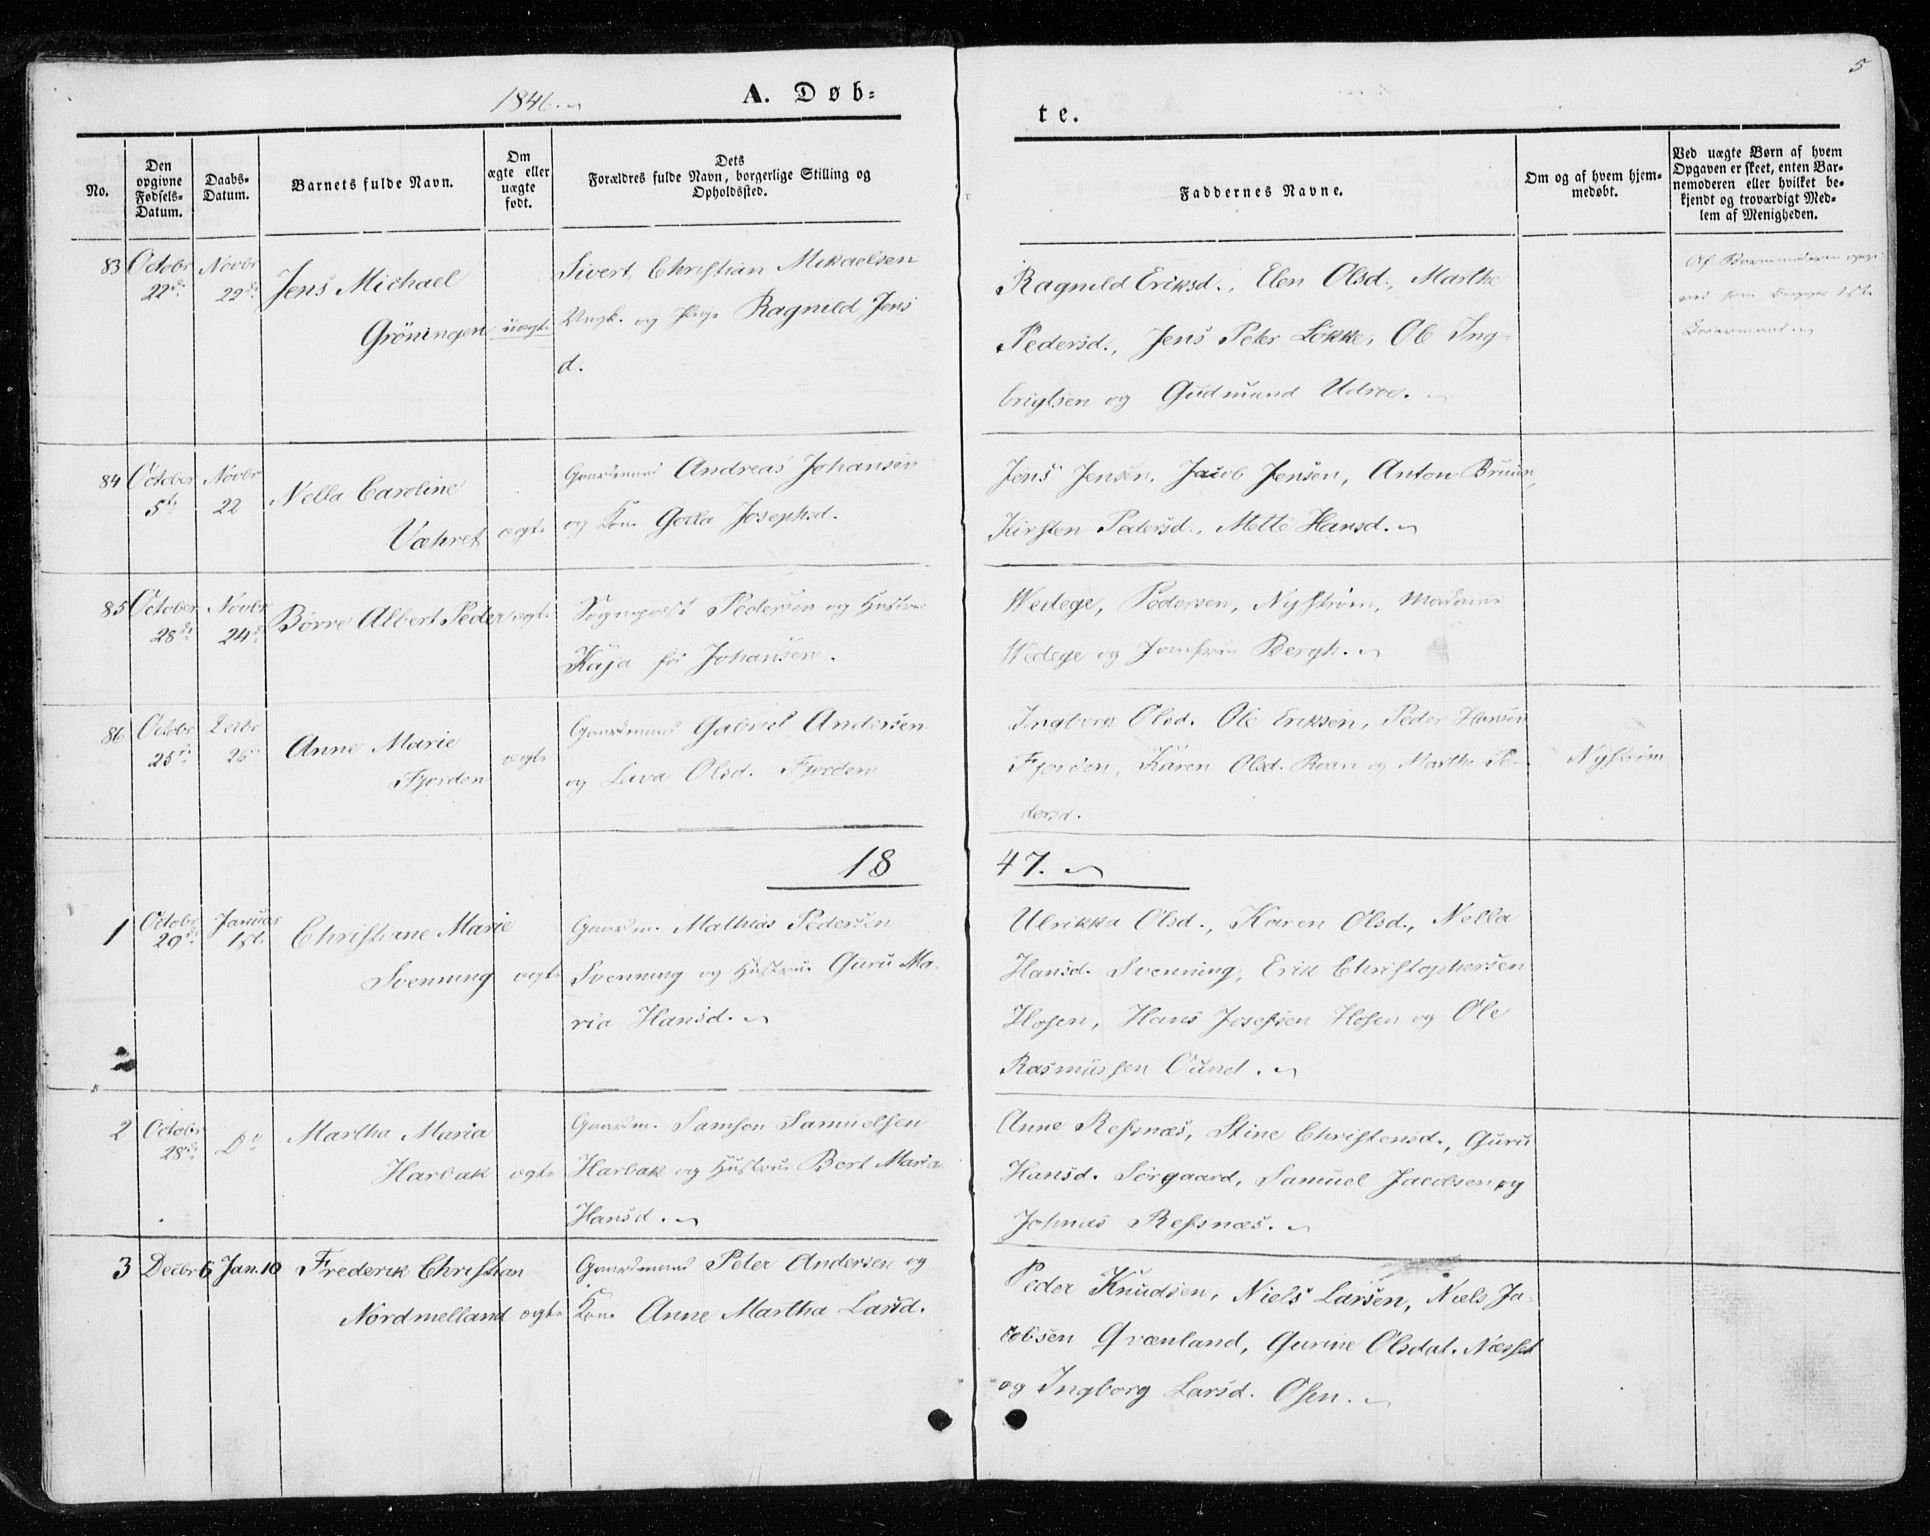 1846.
A. Døb-
te.
5
No.
Den opgivne Fødsels-Datum.
Daabs-Datum.
Barnets fulde Navn.
Om ægte eller uægte født.
Dets Forældres fulde Navn, borgerlige Stilling og Opholdssted.
Faddernes Navne.
Om og af hvem hjem-medøbt.
Ved uægte Børn af hvem
Opgaven er skeet, enten Bar-
nemoderen eller hvilket be-
kjendt og troværdigt Med-
lem af Menigheden.
83 Octobr 22d. Novbr 22d.
Jens Michael
Gröningen uægte
Sivert Christian Mikaelsen
Ungk. og Pige Ragnild Jens
d.
Ragnild Eriksd., Elen Olsd., Marthe
Pedersd., Jens Peter Lökke, Ole Ing-
brigtsen og Gudmund Udroe.
Af Barnemoderen
som begges 1ste
Leiermaal
84 October 5te Novbr 22
Nella Caroline
Væhret ægte
Gaardmand Andreas Johansen
og Kone Golla Josephsd.
Jens Jensen, Jacob Jensen, Anton Bruun,
Kirsten Pedersd., Mette Hansd.
85 October 28de Novbr 24d
Börre Albert Peder ægte
Sogneprest Pedersen og Hustrue
Kaja för Johansen.
Wedege, Pedersen, Nyström, Madame
Wedege og Jomfrue Bergh.
86 Octobr 25de Decbr 26
Anne Marie
Fjorden ægte
Gaardmand Gabriel Andersen
og Lava Olsd. Fjorden
Ingborg Olsd. Ole Eriksen, Peder Hansen
Fjorden, Karen Olsd. Roan og Marthe Pe-
dersd.
Nyström
18
47.
1 Octobr 29de Januar 1ste
Christiane Marie
Svenning ægte
Gaardm. Mathias Pedersen
Svenning og Hustrue Guru Ma-
ria Hansd.
Ulrikka Olsd., Karen Olsd., Nella
Hansd. Svenning, Erik Christophersen
Hofsen, Hans Josefsen Hofsen og Ole
Rasmussen Ound.
2 Octobr 28de Do
Martha Maria
Harbak ægte
Gaardm. Samson Samuelsen
Harbak og Hustrue Bert Maria
Hansd.
Anne Refsnæs, Stine Christensd., Guru
Hansd. Sörgaard, Samuel Jacobsen og
Johnas Refsnæs.
3 Decbr 6 Jan. 10
Frederik Christian
Nordmelland ægte
Gaardmand Peter Andersen og
Kone Anne Martha Larsd.
Peder Knudsen, Niels Larsen, Niels Ja-
cobsen Grænland, Gurine Olsdat. Næsset
og Ingborg Larsd. Osen.